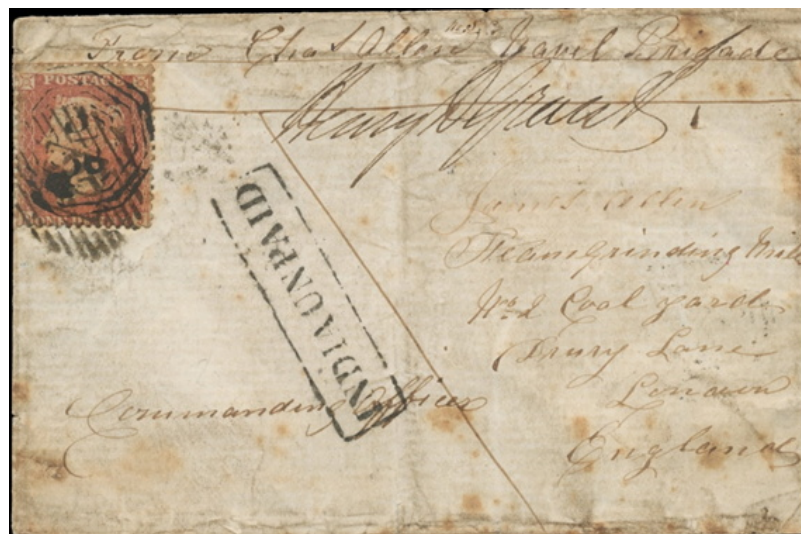 From Chas Allen Naval Brigade
POSTAGE
INDIA UNPAID
James Allen
Steam Grinding Mill
No. 2 Coal yard
Drury Lane
London
England
Commanding Officer